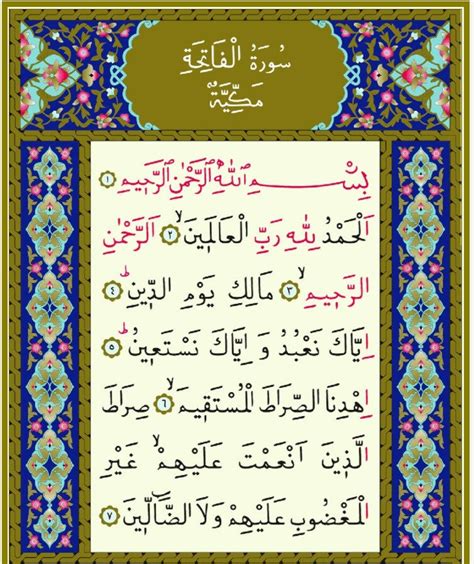 سُورَةُ الْفَاتِحَةِ
مَكِّيَّةٌ
بِسْــــمِ اللّٰهِ الرَّحْمٰنِ الرَّحٖيمِ ١
اَلْحَمْدُ لِلّٰهِ رَبِّ الْعَالَمٖينَۙ ٢ اَلرَّحْمٰنِ
الرَّحٖيمِۙ ٣ مَالِكِ يَوْمِ الدّٖينِؕ ٤
اِيَّاكَ نَعْبُدُ وَ اِيَّاكَ نَسْتَعٖينُؕ ٥
اِهْدِنَا الصِّرَاطَ الْمُسْتَقٖيمَۙ ٦ صِرَاطَ
الَّذٖينَ اَنْعَمْتَ عَلَيْهِمْۙ غَيْرِ
الْمَغْضُوبِ عَلَيْهِمْ وَلَا الضَّٓالّٖينَ ٧